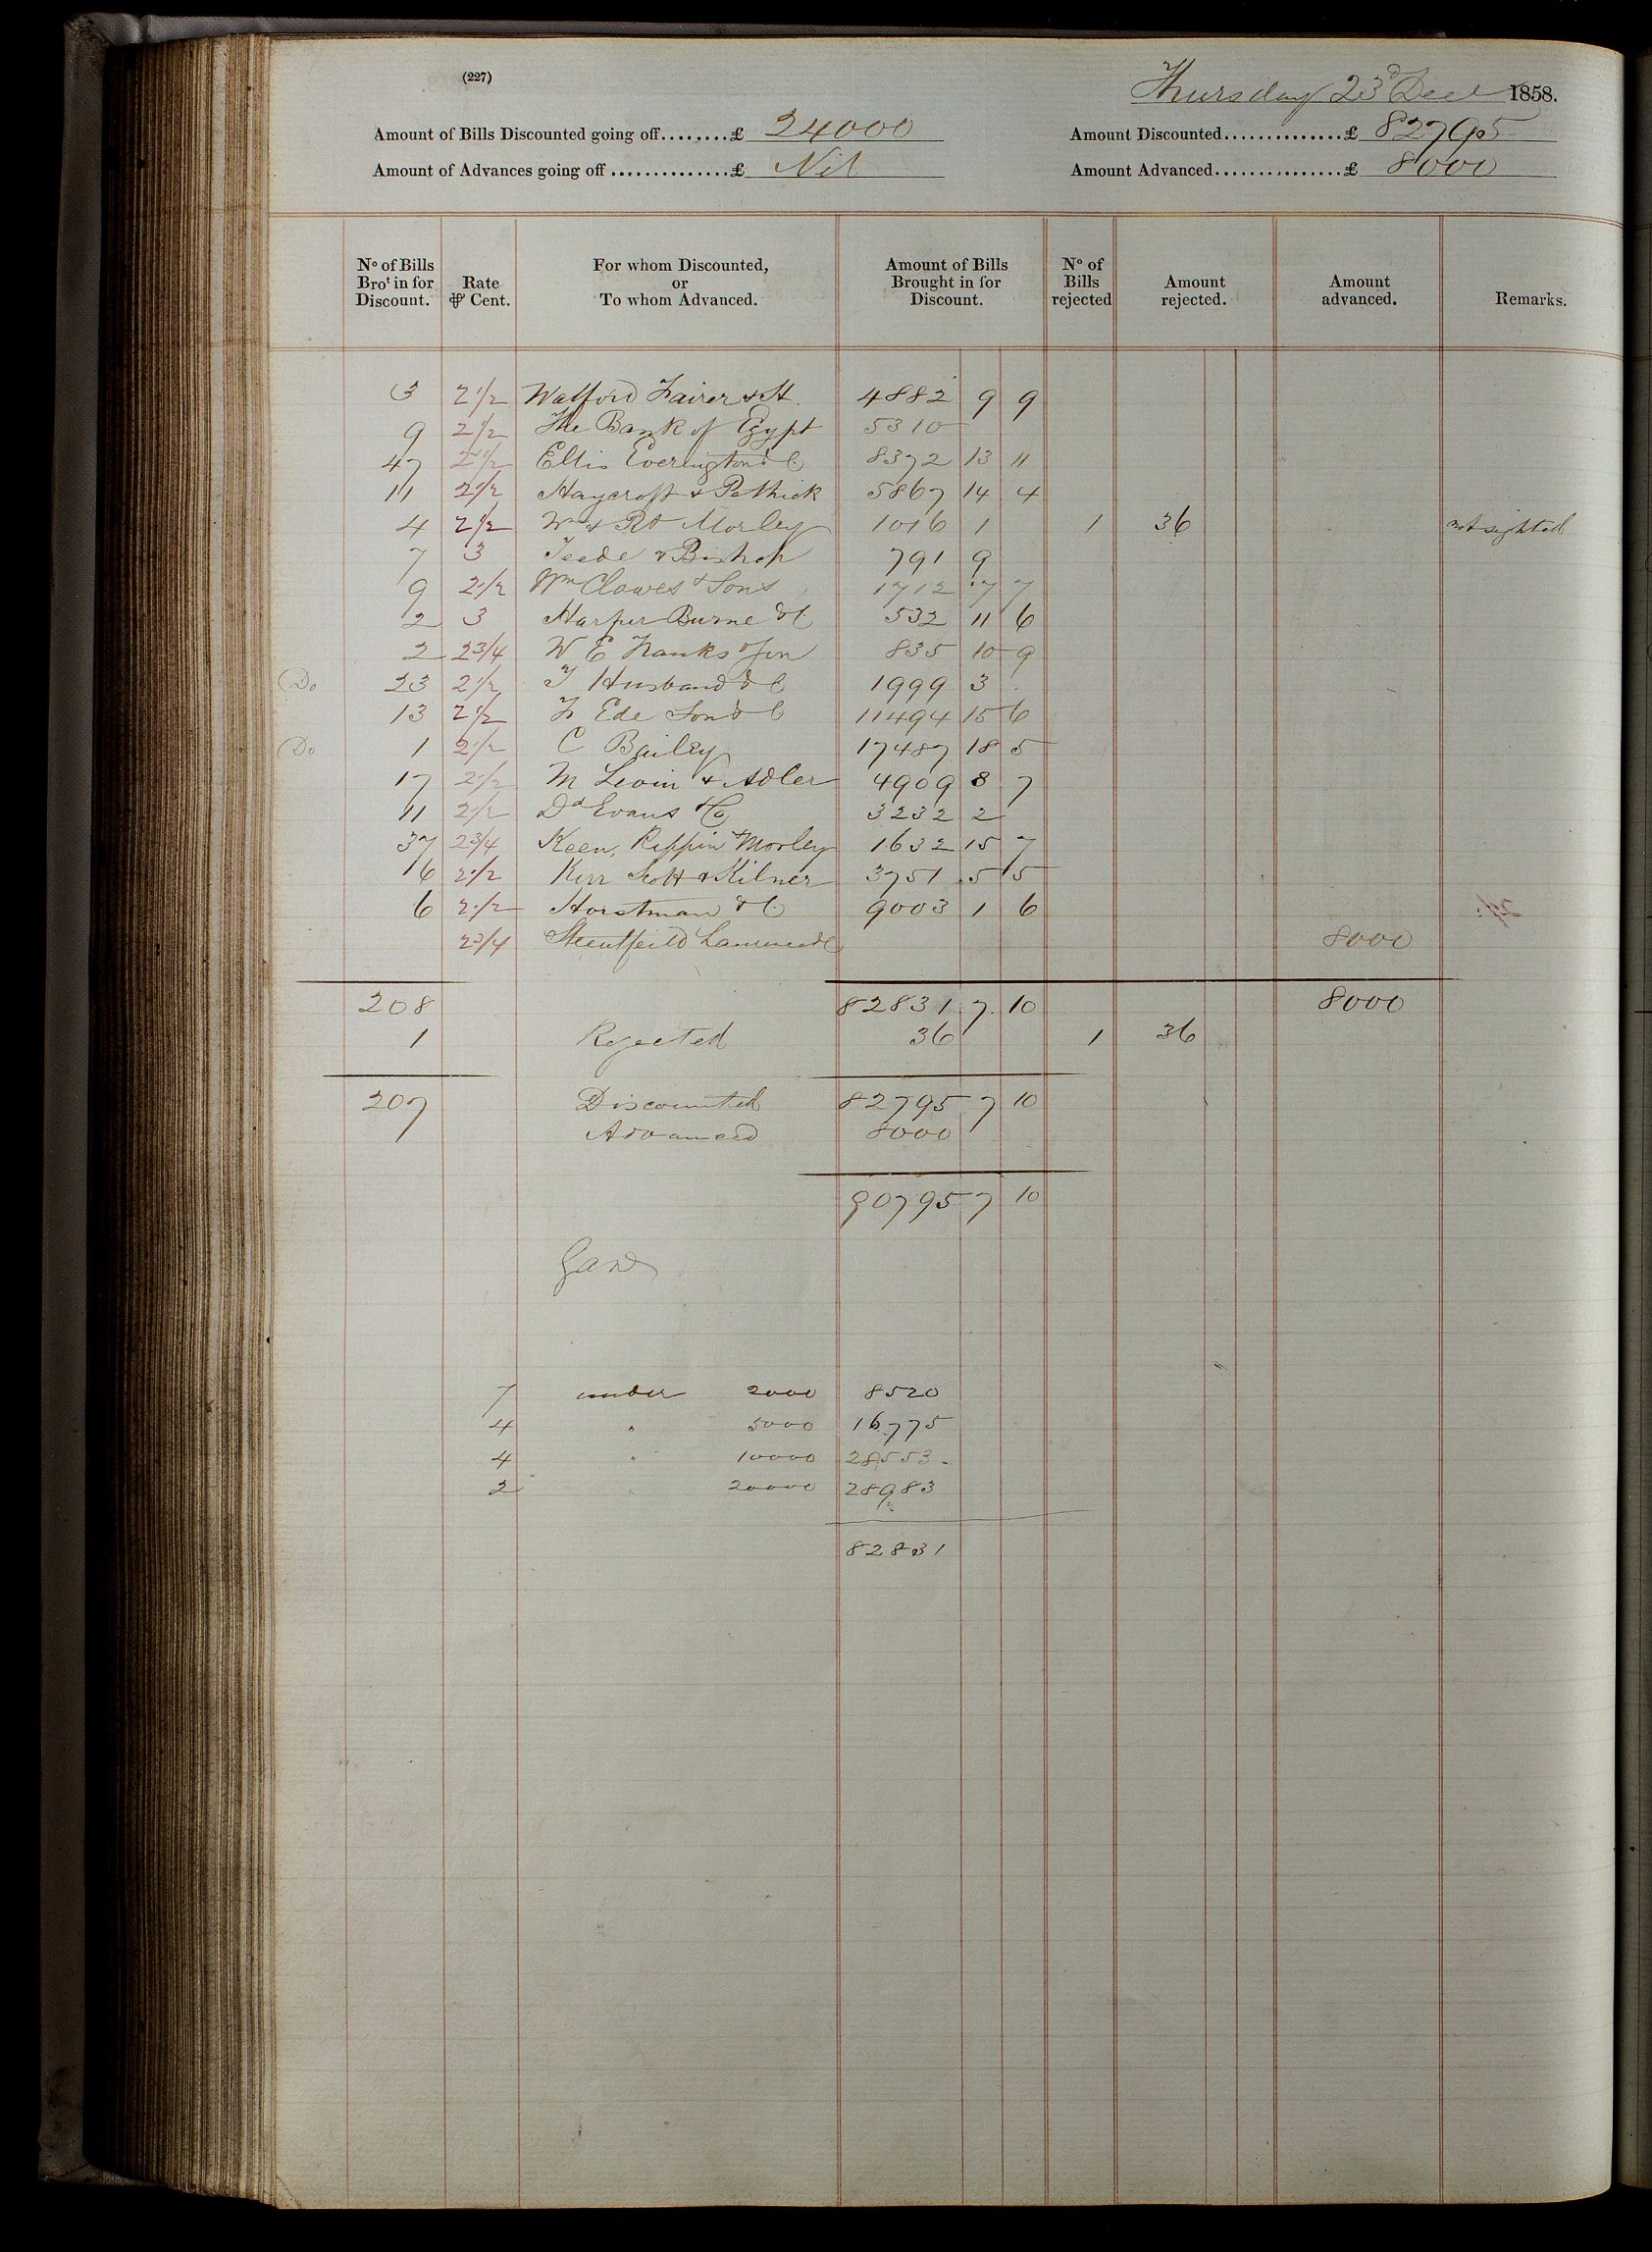 (227)
Thursday 23d Decr 1858.
Amount of Bills Discounted going off........£ 24000 Amount Discounted..............£ 82795
Amount of Advances going off..............£ Nil Amount Advanced...............£ 8000
No of Bills Brot in for Discount. Rate ⅌ Cent. For whom Discounted, or To whom Advanced. Amount of Bills Brought in for Discount. No of Bills rejected Amount rejected. Amount advanced. Remarks.
3 2 1/2 Watford Fairer & St. 4882 9 9
9 2 1/2 The Bank of Egypt 5310
47 2 1/2 Ellis Everington & C 8372 13 11
11 2 1/2 Haycroft & Pethick 5867 14 4
4 2 1/2 Wm & Rt Morley 1016 1 1 36 not sighted
7 3 Teede & Bishop 791 9
9 2 1/2 Wm Clowes & Sons 1712 7 7
2 3 Harper Burne & C 532 11 6
2 2 3/4 W E Franks & Son 835 10 9
Do 23 2 1/2 T Husband & C 1999 3
13 2 1/2 F Ede Son & C 11494 15 6
Do 1 2 1/2 C Bailey 17487 18 5
17 2 1/2 M Levin & Adler 4909 8 7
11 2 1/2 Dd Evans & Co 3232 2
37 2 3/4 Keen, Rippin & Morley 1632 15 7
6 2 1/2 Kerr Scott & Kilner 3751 5 5
6 2 1/2 Horstman & C 9003 1 6
2 3/4 8000
208 82831 7 10 8000
1 Rejected 36 1 36
207 Discounted 82795 7 10
Advanced 8000
90795 7 10
7 under 2000 8520
4 " 5000 16775
4 " 10000 28553
2 " 20000 28983
82831